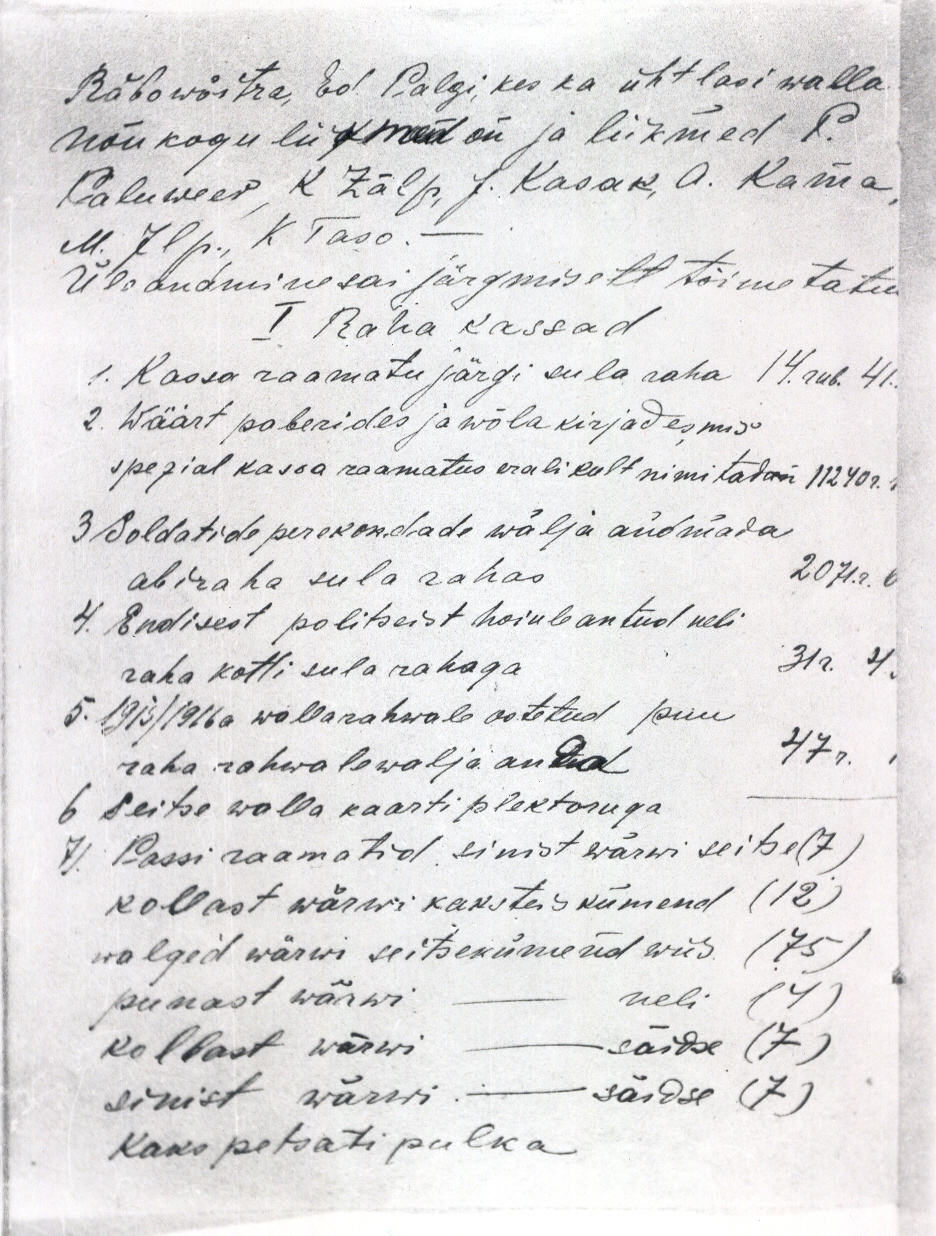 Räbowõitra, Ed Palgi, kes ka üht lasi walla
nõukogu liikmed on ja liikmed P.
Paluweer, K Zälp, J. Kasak, A. Kama,
M. Ilp., K Taso. —
Üleandmine sai järgmiselt töimetatu
I Raha kassad
1. Kassa raamatu järgi sula raha 14. rub. 41.
2. Wäärt paberides ja wõla kirjades, mis
spezial kassa raamatus eralikult nimitadan 11240 r.
3 Soldatide perekondade wälja andmada
abiraha sula rahas 2071. r. 6
4. Endisest politseist hoiule antud neli
raha kotti sula rahaga 31 r. 4
5. 1915/1916 a wallarahwale ostetud puu
raha rahwale walja antud 47 r.
6 Seitse walla kaarti plektoruga
7). Passi raamatid sinist wärwi seitse (7)
kollast wärwi kaksteiskümend (12)
walged wärwi seitsekümend wiis (75)
punast wärwi — neli (4)
kollast wärwi — säidse (7)
sinist wärwi. — säidse (7)
Kaks petsati pulka